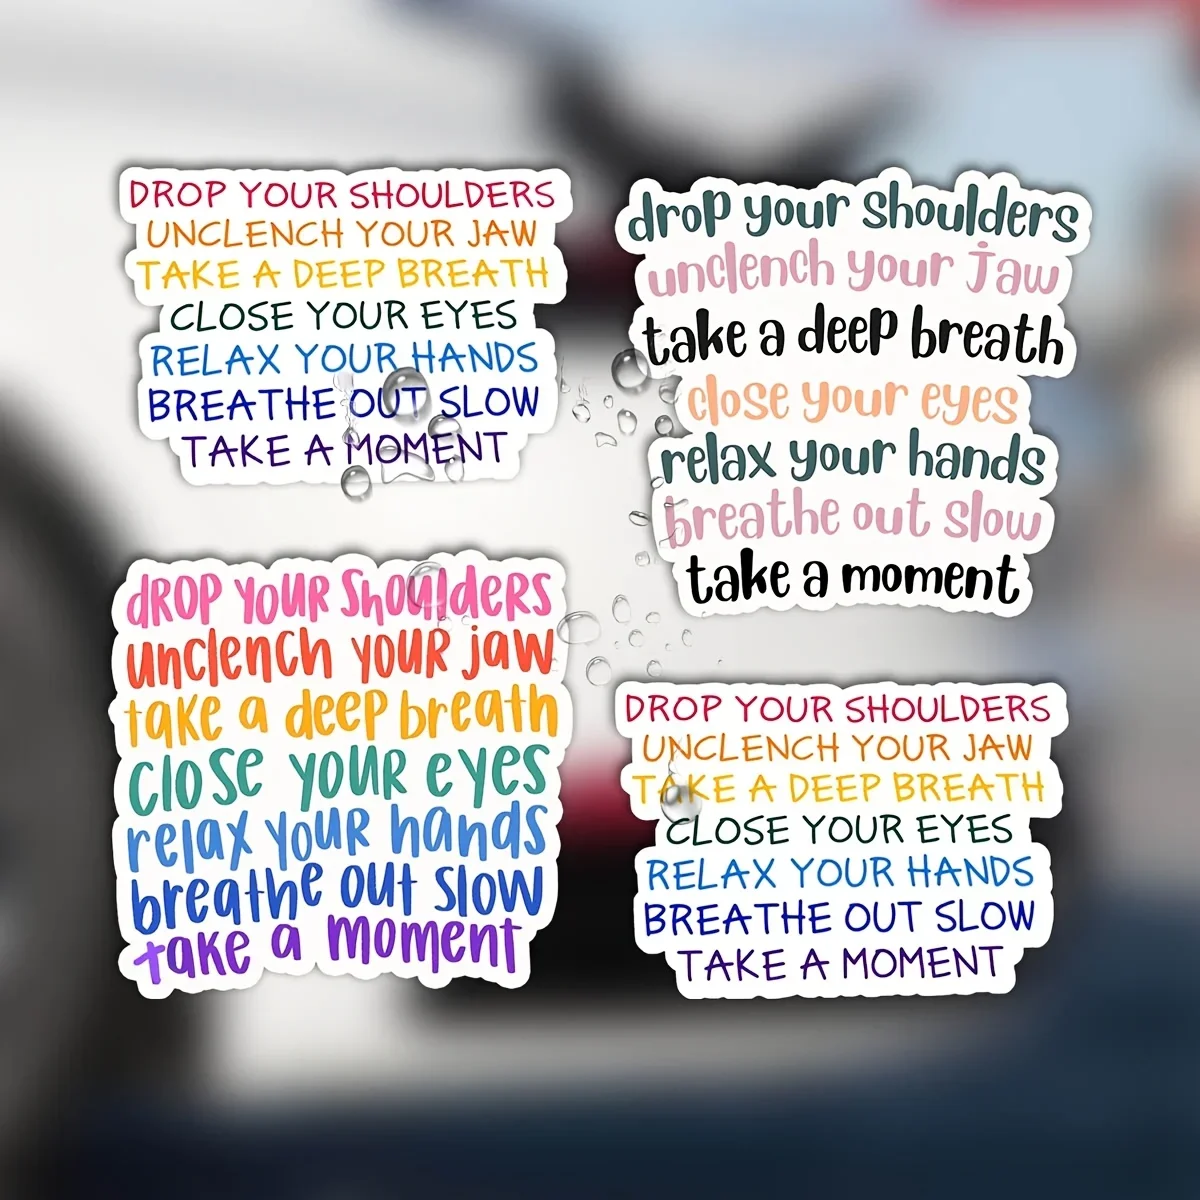 DROP YOUR SHOULDERS
UNCLENCH YOUR JAW
TAKE A DEEP BREATH
CLOSE YOUR EYES
RELAX YOUR HANDS
BREATHE OUT SLOW
TAKE A MOMENT
drop your shoulders
unclench your jaw
take a deep breath
close your eyes
relax your hands
breathe out slow
take a moment
dROP YOUR Shoulders
unclench YOUR jaw
take a deep breath
close YOUR eyes
relax YOUR hands
breathe out slow
take a moment
DROP YOUR SHOULDERS
UNCLENCH YOUR JAW
TAKE A DEEP BREATH
CLOSE YOUR EYES
RELAX YOUR HANDS
BREATHE OUT SLOW
TAKE A MOMENT